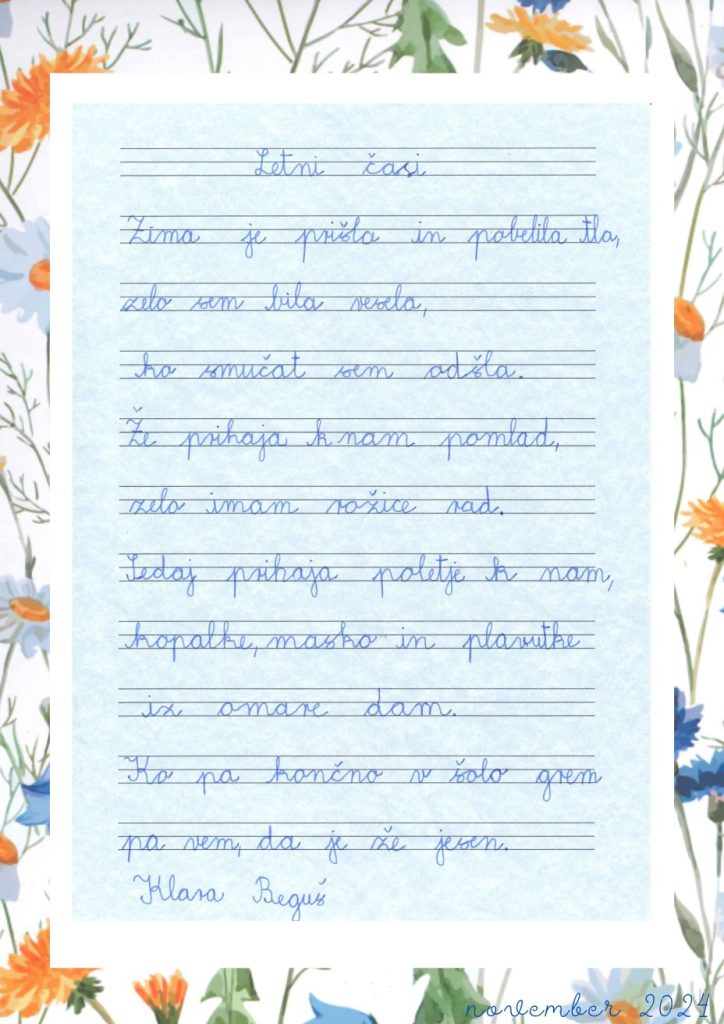 Letni časi
Zima je prišla in pobelila tla,
zelo sem bila vesela,
ko smučat sem odšla.
Že prihaja k nam pomlad,
zelo imam rožice rad.
Sedaj prihaja poletje k nam,
kopalke, masko in plavutke
iz omare dam.
Ko pa končno v šolo grem
pa vem, da je že jesen.
Klara Beguš
november 2024